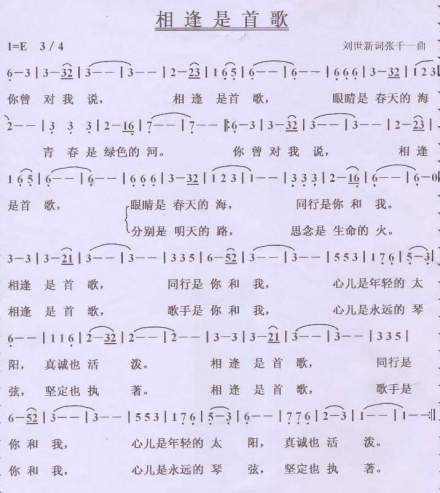 相逢是首歌
1=E 3/4 刘世新词张千一曲
6-3|3-32|3--|3--|2-23|165|6--|6--|666|3-32|3-23|123|
你曾 对我 说， 相逢 是首 歌， 眼睛是 春天的 海
2--|3 3 3|2-16|7--|7--|:6-3|3-32|3--|3--|2-23|
青春是 绿色的 河。 你曾 对我 说， 相逢
165|6--|6--|666|3-32|123|1--|333|2-16|6--|6-0|
是首 歌， 眼睛是 春天的 海， 同行是 你和 我。
分别是 明天的 路， 思念是 生命的 火。
3-3|3-21|3--|3--|335|6-52|3--|3--|553|176|5-3|
相逢 是首 歌， 同行是 你和 我， 心儿是年轻的 太
相逢 是首 歌， 歌手是 你和 我， 心儿是永远的 琴
6--|116|2-32|2--|2--|3-3|3-21|3--|3--|335|
阳， 真诚也 活 泼。 相逢 是首 歌， 同行是
弦， 坚定也 执 著。 相逢 是首 歌， 歌手是
6-52|3--|3--|553|176|5-3|6--|776|2-3|1--|1--:|
你和 我， 心儿是年轻的 太 阳， 真诚也 活 泼。
你和 我， 心儿是永远的 琴 弦， 坚定也 执 著。